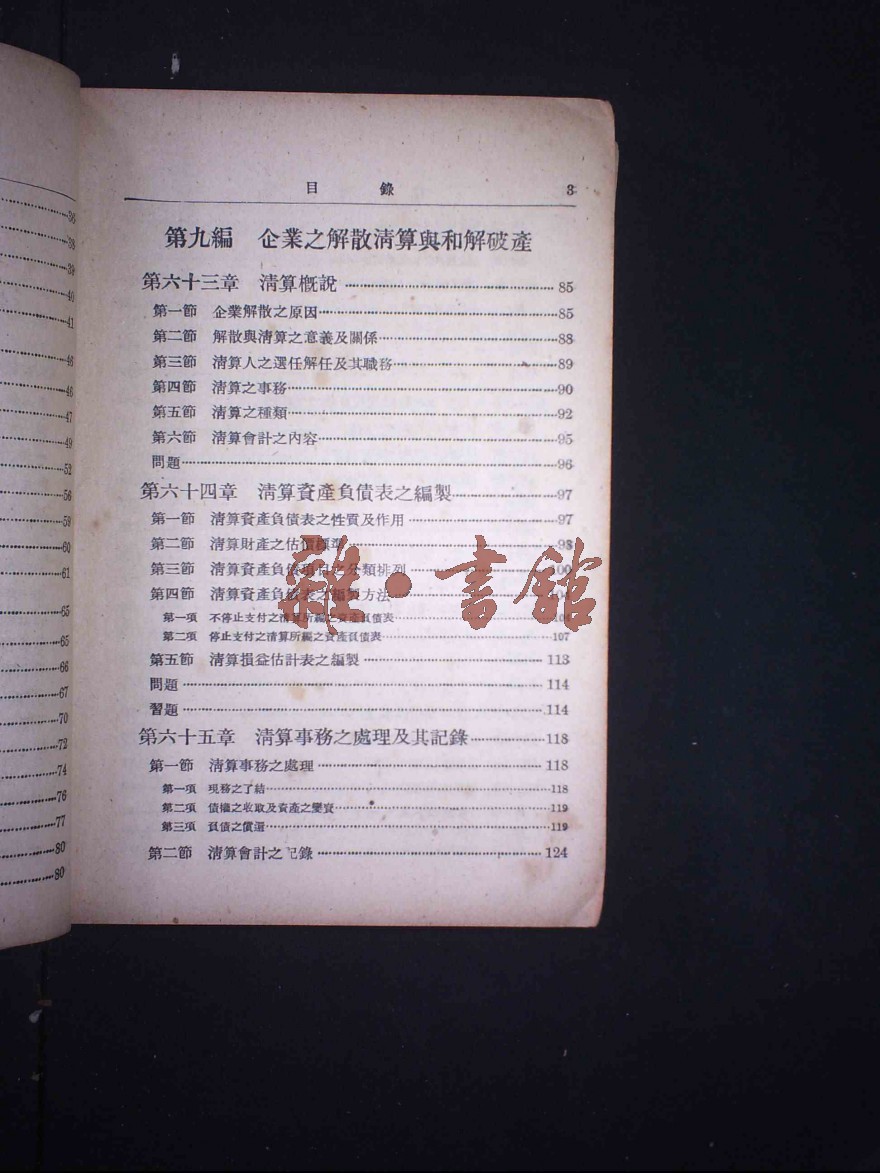 36
38
39
40
41
46
46
47
49
52
56
58
60
61
65
65
66
67
70
72
74
76
77
80
80
目錄 3
第九編 企業之解散清算與和解破產
第六十三章 清算概說 85
第一節 企業解散之原因 85
第二節 解散與清算之意義及關係 88
第三節 清算人之選任解任及其職務 89
第四節 清算之事務 90
第五節 清算之種類 92
第六節 清算會計之內容 95
問題 96
第六十四章 清算資產負債表之編製 97
第一節 清算資產負債表之性質及作用 97
第二節 清算財產之估價標準 98
第三節 清算資產負債項目之分類排列 100
第四節 清算資產負債表之編製方法 104
第一項 不停止支付之清算所編之資產負債表 104
第二項 停止支付之清算所編之資產負債表 107
第五節 清算損益估計表之編製 113
問題 114
習題 114
第六十五章 清算事務之處理及其記錄 118
第一節 清算事務之處理 118
第一項 現務之了結 118
第二項 債權之收取及資產之變賣 119
第三項 負債之償還 119
第二節 清算會計之記錄 124
雜·書館